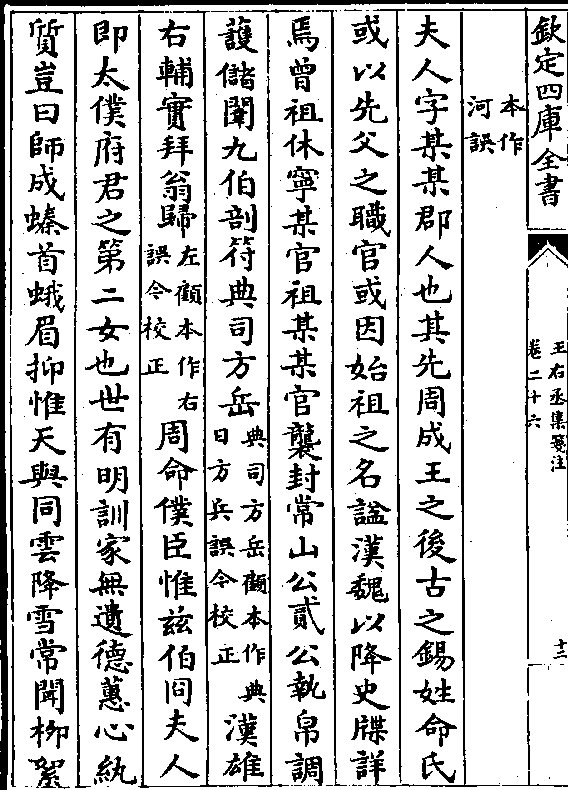 欽定四庫全書
王右丞集箋注
卷二十六
十三
本作
河誤
夫人字某某郡人也其先周成王之後古之錫姓命氏
或以先父之職官或因始祖之名謚漢魏以降史牒詳
焉曾祖休寧某官祖某某官襲封常山公貳公執帛調
護儲闈九伯剖符典司方岳典司方岳顧本作典
曰方兵誤令校正漢雄
右輔實拜翁歸左顧本作右
誤令校正周命僕臣惟兹伯冏夫人
即太僕府君之第二女也世有明訓家無遺德蕙心紈
質豈曰師成螓首蛾眉抑惟天與同雲降雪常聞柳絮